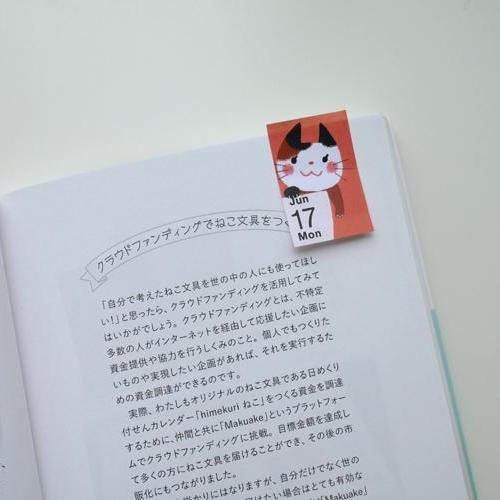 クラウドファンディングでねこ文具をつ
Jun
17
Mon
「自分で考えたねこ文具を世の中の人にも使ってほし
い!」と思ったら、クラウドファンディングを活用してみて
はいかがでしょう。クラウドファンディングとは、不特定
多数の人がインターネットを経由して応援したい企画に
資金提供や協力を行うしくみのこと。個人でもつくりた
いものや実現したい企画があれば、それを実行するた
めの資金調達ができるのです。
実際、わたしもオリジナルのねこ文具である日めくり
付せんカレンダー「himekuri ねこ」をつくる資金を調達
するために、仲間と共に「Makuake」というプラットフォー
ムでクラウドファンディングに挑戦。目標金額を達成し
て多くの方にねこ文具を届けることができ、その後の市
販化にもつながりました。
掛かりにはなりますが、自分だけでなく世の
たい場合はとても有効な
Makuake」